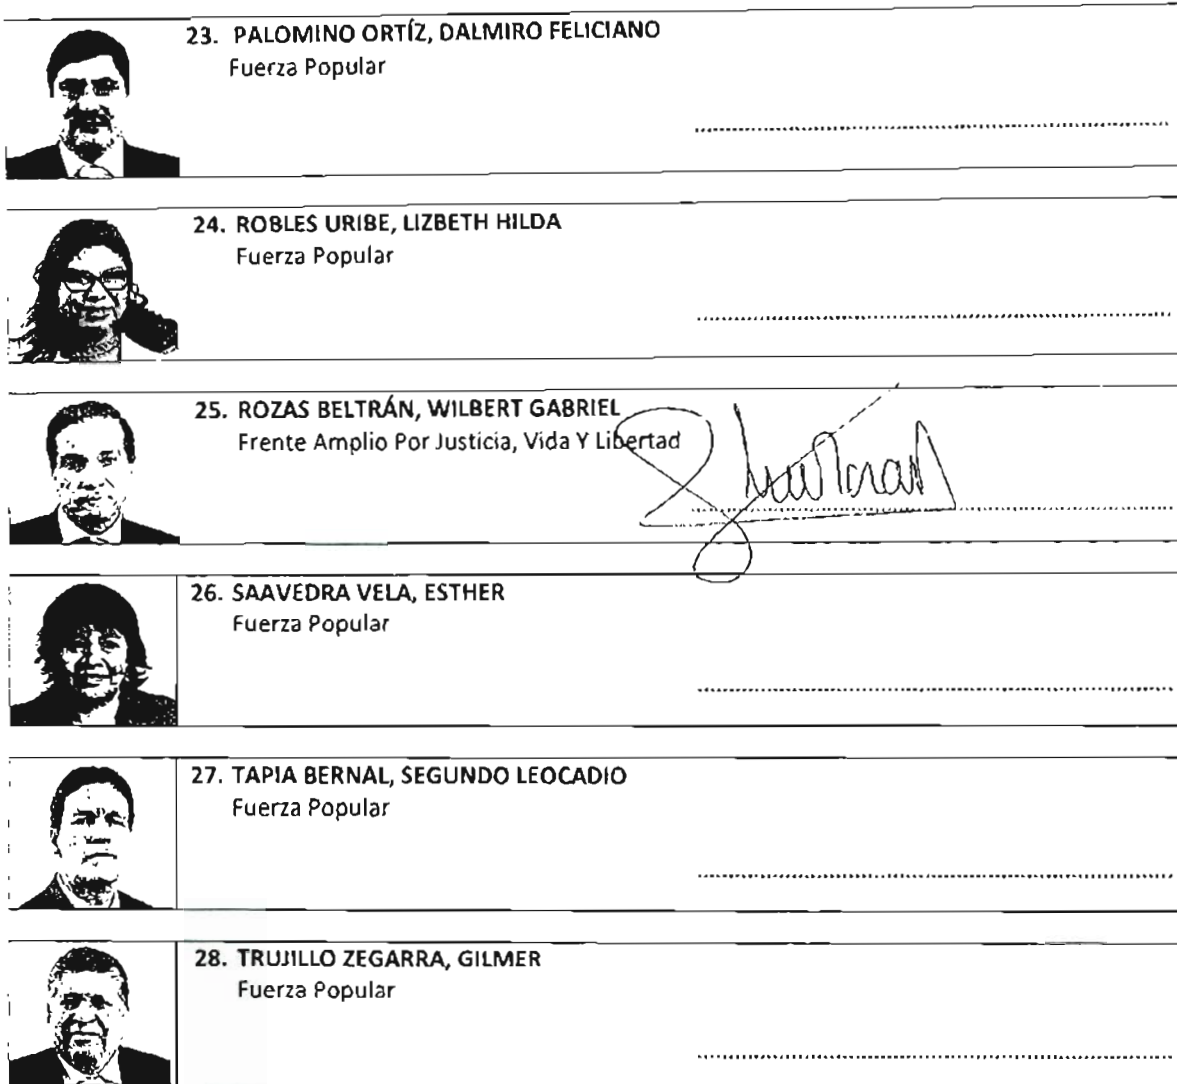 23. PALOMINO ORTÍZ, DALMIRO FELICIANO
Fuerza Popular
24. ROBLES URIBE, LIZBETH HILDA
Fuerza Popular
25. ROZAS BELTRÁN, WILBERT GABRIEL
Frente Amplio Por Justicia, Vida Y Libertad
26. SAAVEDRA VELA, ESTHER
Fuerza Popular
27. TAPIA BERNAL, SEGUNDO LEOCADIO
Fuerza Popular
28. TRUJILLO ZEGARRA, GILMER
Fuerza Popular